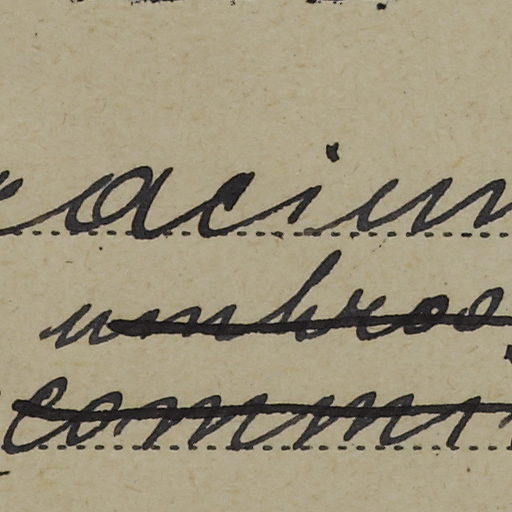 racium
umbros
commi